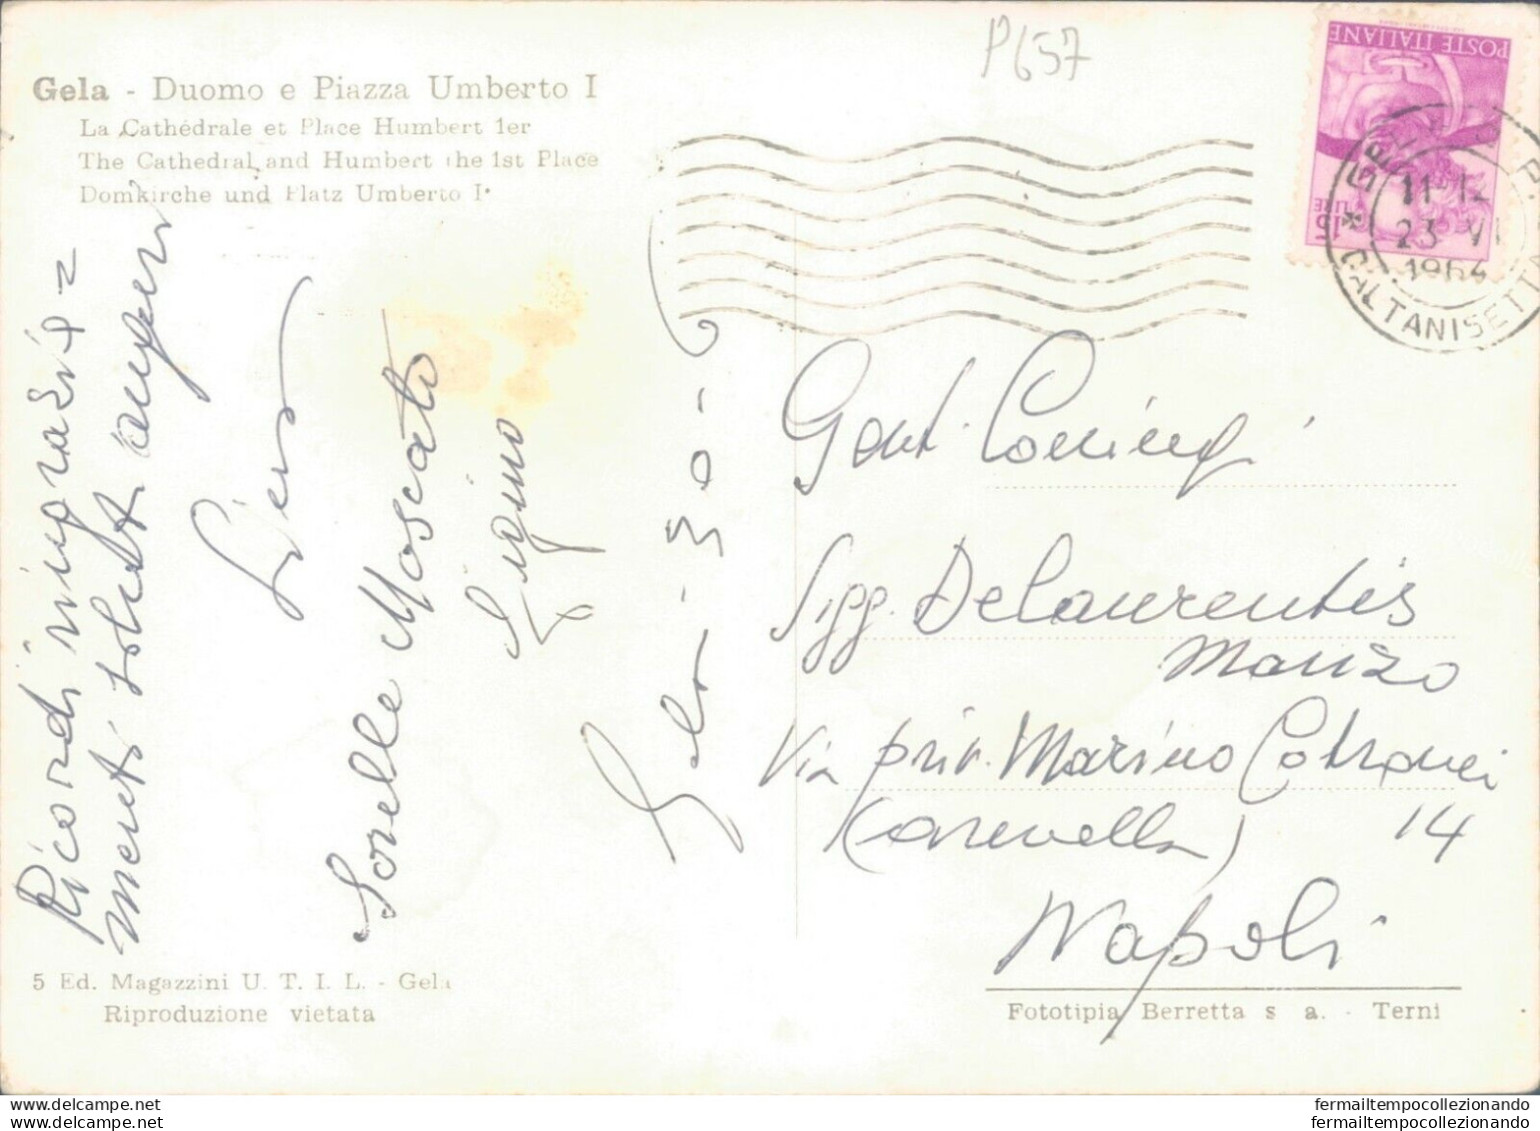 P657
POSTE ITALIANE
LIRE 15
Gela - Duomo e Piazza Umberto I
La Cathédrale et Place Humbert 1er
The Cathedral and Humbert the 1st Place
Domkirche und Platz Umberto I°
GELA
11-12
23 VI
1964
CALTANISETTA
Ricordi ringrazia=
menti saluti
Sorelle Moscato
Gela - 30 - 6
Gent. Coniugi
Sigg. DeLaurentis
Manzo
Via priv. Marino Cotronei
(Caravella) 14
Napoli
5 Ed. Magazzini U. T. I. L. - Gela
Riproduzione vietata
Fototipia Berretta s a. - Terni
fermailtempocollezionando
fermailtempocollezionando
www.delcampe.net
www.delcampe.net